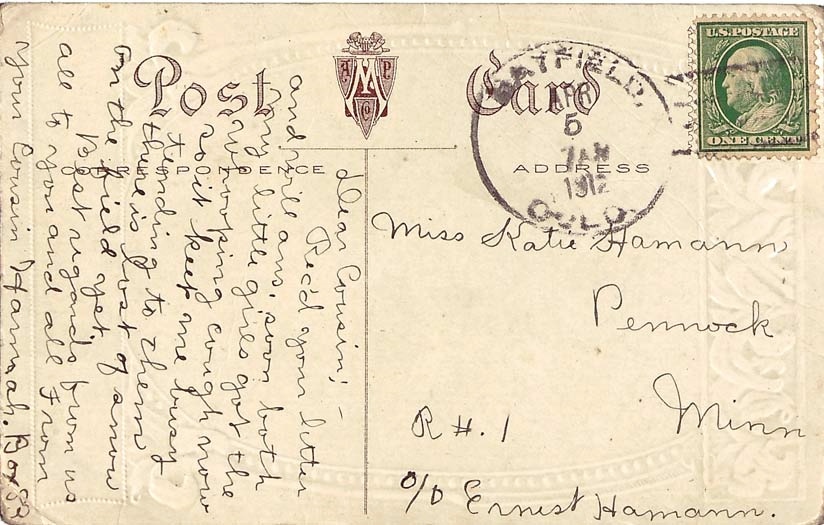 Post Card
A M P Co
CORRESPONDENCE
ADDRESS
BAYFIELD,
APR
5
7AM
1912
COLO.
U.S. POSTAGE
ONE CENT
Miss Katie Hamann
Pennock
Minn
R #. 1
c/o Ernest Hamann.
Dear Cousin; -
Rec'd your letter
and will ans. soon both
my little girls got the
whooping cough now
so it keep me busy
tending to them
there is lost of snow
on the field yet.
Best regards from us
all to you and all From
your Cousin Hannah. Box 82